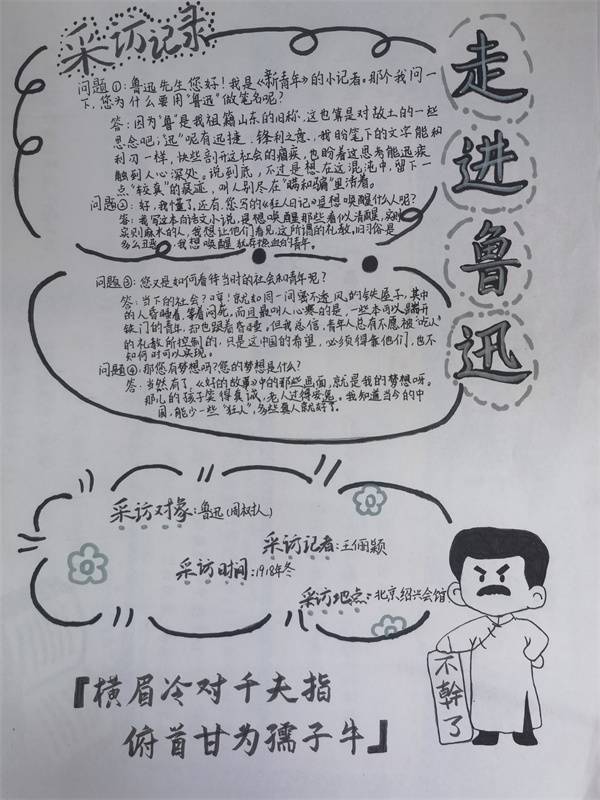 走进鲁迅
采访记录
问题①：鲁迅先生您好！我是《新青年》的小记者。那个我问一
下，您为什么要用“鲁迅”做笔名呢？
答：因为“鲁”是我祖籍山东的旧称，这也算是对故土的一些
思念吧；“迅”呢有迅捷、锋利之意，我盼笔下的文字能和
利刃一样，快些剖开这社会的痼疾，也盼着这思考能迅疾
触到人心深处。说到底，不过是想在这混沌中，留下一
点“较真”的痕迹，叫人别尽在“瞒和骗”里活着。
问题②：好，我懂了，还有，您写的《狂人日记》是想唤醒什么人呢？
答：我写这本白话文小说，是想唤醒那些看似清醒，实则
实则麻木的人，我想让他们看见，这所谓的礼教，旧习俗是
多么丑恶，我想唤醒犹存热血的青年。
问题③：您又是如何看待当时的社会和青年呢？
答：当下的社会？哼！就如同一间密不透风的铁屋子，其中
的人昏睡着，等着闷死，而且最叫人心寒的是，一些本可以踹开
铁门的青年，却也跟着昏睡。但我总信，青年人总有不愿被“吃人”
的礼教所控制的，只是这中国的希望，必须得靠他们，也不
知何时可以实现。
问题④：那您有梦想吗？您的梦想是什么？
答：当然有了，《好的故事》中的那些画面，就是我的梦想呀。
那儿的孩子笑得真诚，老人过得安逸。我知道当今的中
国，能少一些“狂人”，多些真人就好了。
采访对象：鲁迅（周树人）
采访记者：王俪颖
采访时间：1918年冬
采访地点：北京绍兴会馆
『横眉冷对千夫指
俯首甘为孺子牛』
不幹了